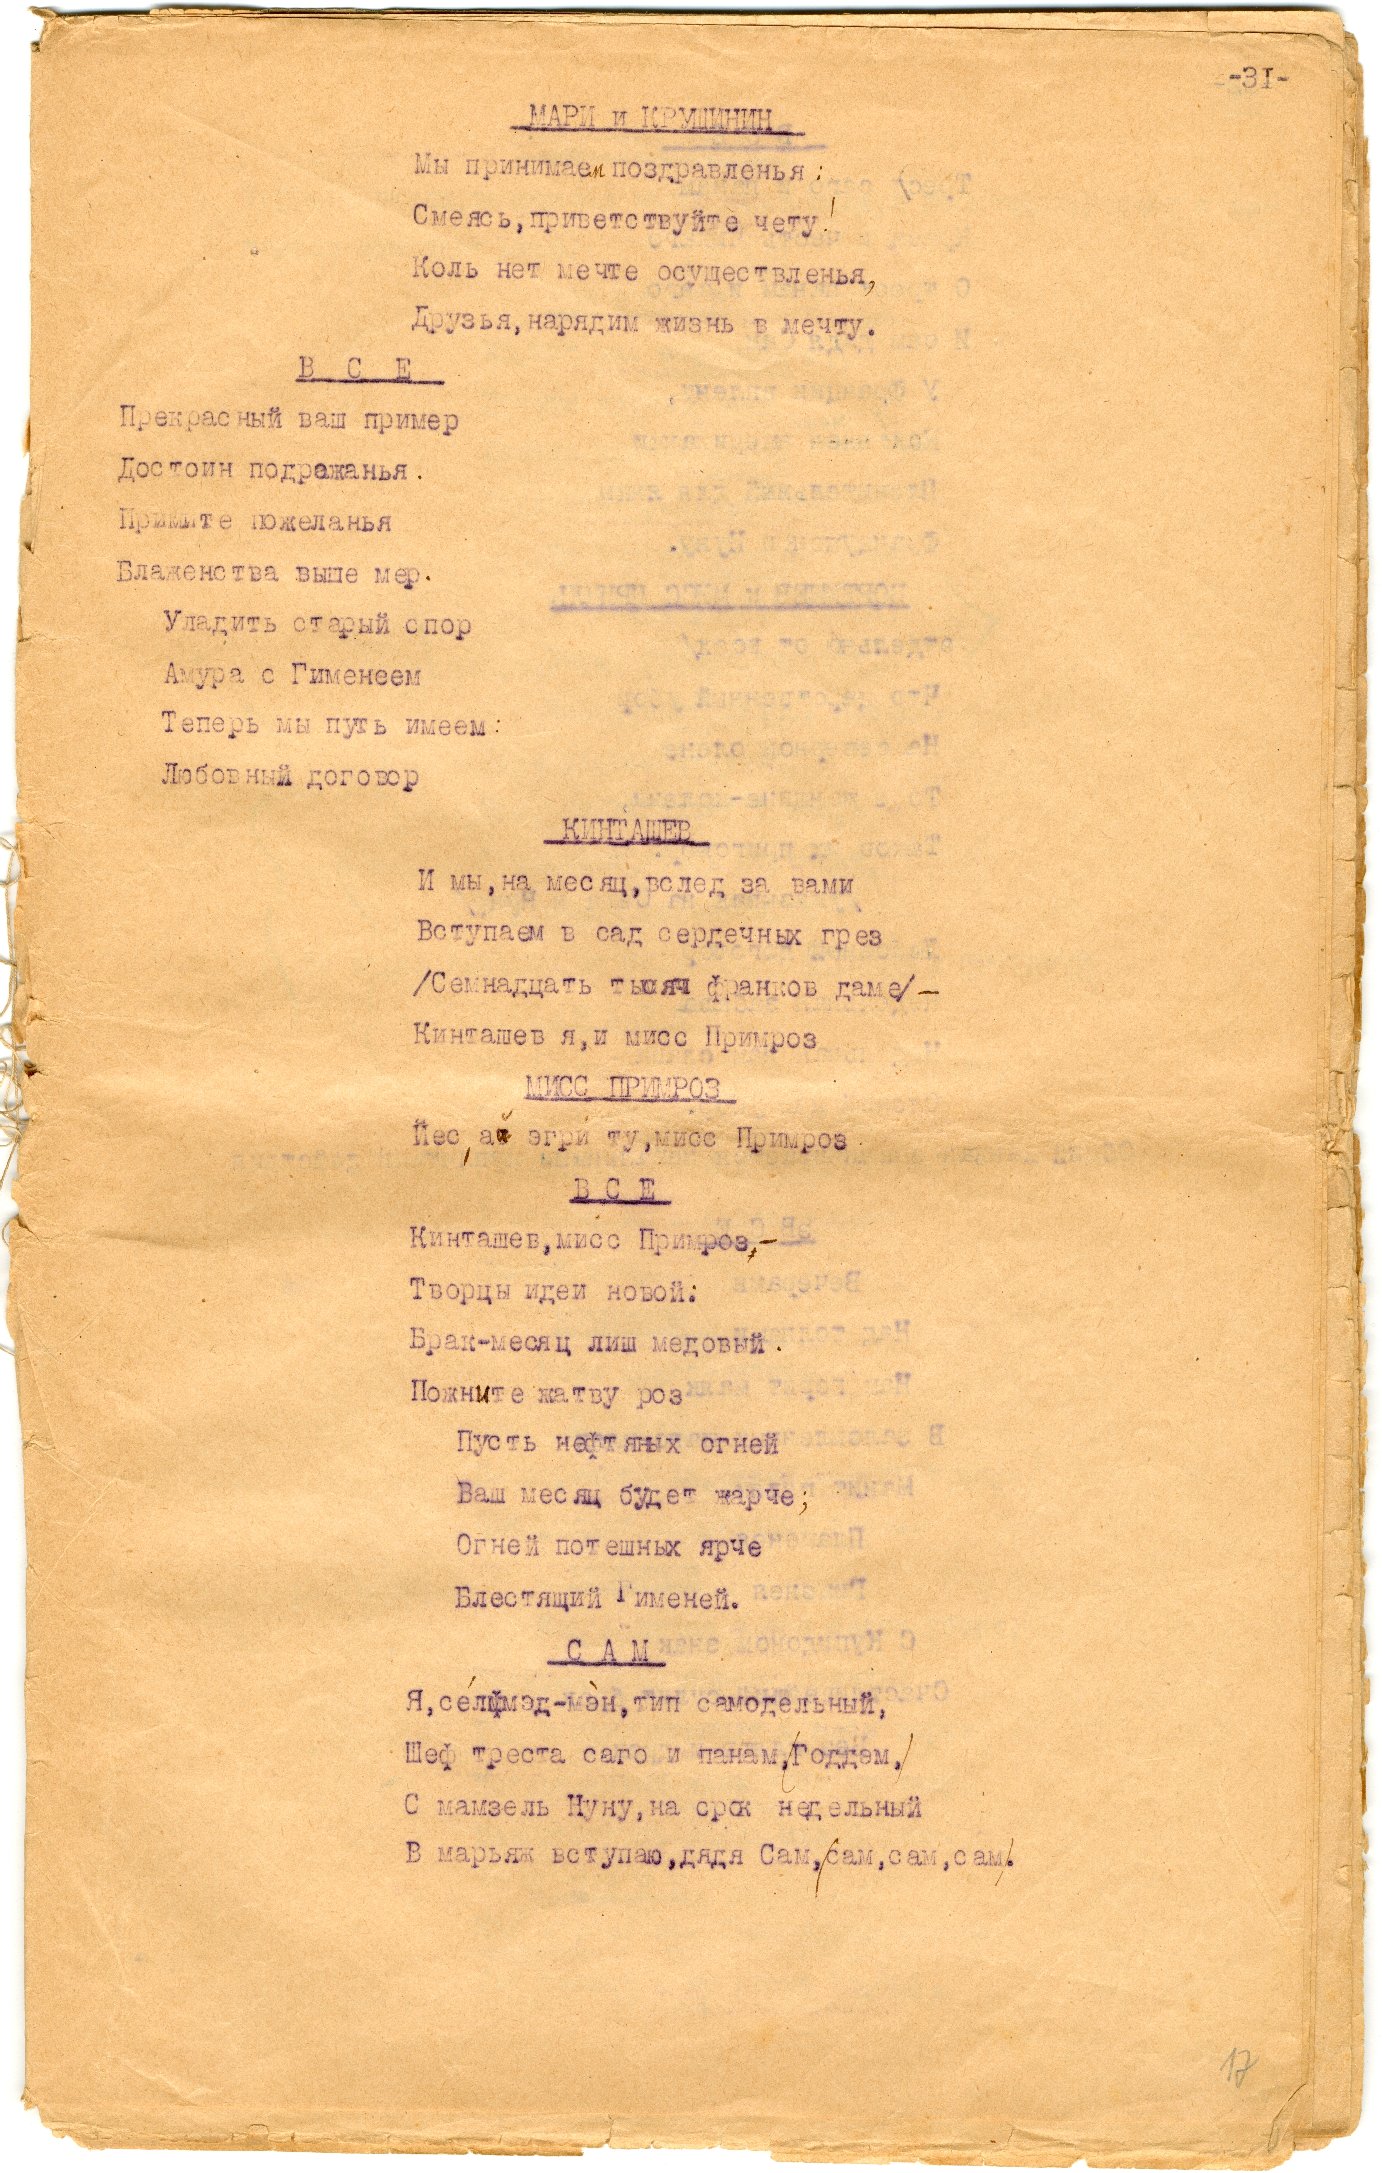 -31-
МАРИ и КРУШИНИН
Мы принимаем поздравленья:
Смеясь,приветствуйте чету!
Коль нет мечте осуществленья,
Друзья,нарядим жизнь в мечту.
В С Е
Прекрасный ваш пример
Достоин подражанья.
Примите пожеланья
Блаженства выше мер.
Уладить старый спор
Амура с Гименеем
Теперь мы путь имеем:
Любовный договор
КИНТАШЕВ
И мы,на месяц,вслед за вами
Вступаем в сад сердечных грез
/Семнадцать тысяч франков даме/—
Кинташев я,и мисс Примроз
МИСС ПРИМРОЗ
Йес, ай эгри ту,мисс Примроз
В С Е
Кинташев,мисс Примроз,—
Творцы идеи новой:
Брак-месяц лиш медовый.
Пожните жатву роз
Пусть нефтяных огней
Ваш месяц будет жарче;
Огней потешных ярче
Блестящий Гименей.
С А М
Я,се́лфмэд-мэ́н,тип самодельный,
Шеф треста саго и панам,(Годдэм,)
С мамзель Нуну,на срок недельный
В марьяж вступаю,дядя Сам,(сам,сам,сам).
17